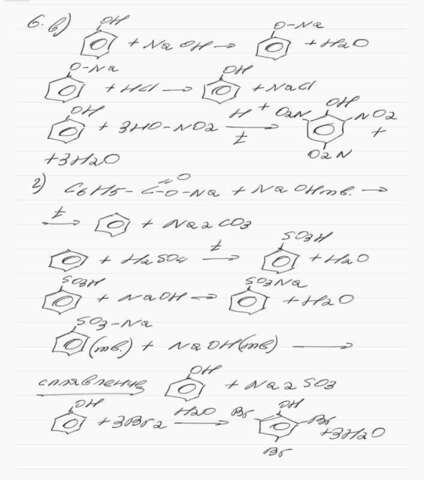 6. в)
OH + NaOH → O-Na + H2O
O-Na + HCl → OH + NaCl
OH + 3HO-NO2 H+ t → O2N OH NO2 O2N +
+3H2O
г) C6H5-C=O-O-Na + NaOHтв. →
t → + Na2CO3
+ H2SO4 t → SO3H + H2O
SO3H + NaOH → SO3Na + H2O
SO3-Na (тв.) + NaOH(тв) →
сплавление OH + Na2SO3
OH + 3Br2 H2O → Br OH Br Br +3H2O